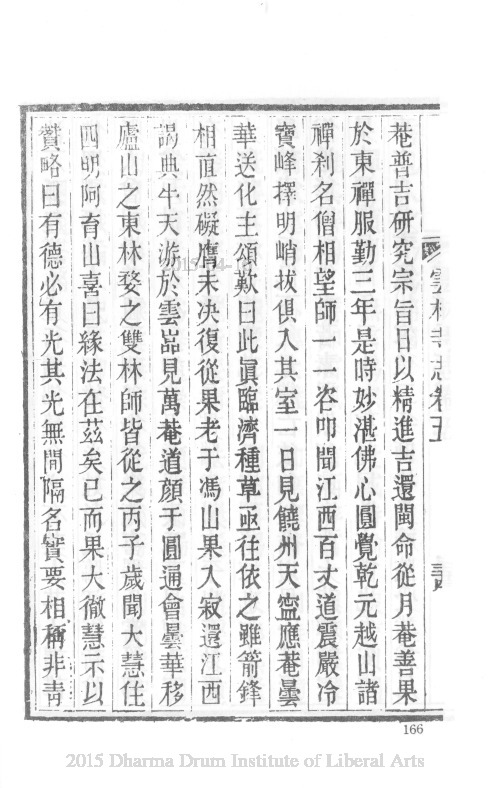 雲林寺志卷五
菴普吉研究宗旨日以精進吉還閩命從月菴善果
於東禪服勤三年是時妙湛佛心圓覺乾元越山諸
禪刹名僧相望師一一咨叩聞江西百丈道震嚴冷
寶峰擇明峭拔俱入其室一日見饒州天寧應菴曇
華送化主頌歎曰此眞臨濟種草亟往依之雖箭鋒
相直然礙膺未決復從果老于馮山果入寂還江西
謁典牛天游於雲嵓見萬菴道顏于圓通會曇華移
廬山之東林婺之雙林師皆從之丙子歲聞大慧住
四明阿育山喜曰緣法在茲矣已而果大徹慧示以
贊略曰有德必有光其光無間隔名實要相稱非靑
166
2015 Dharma Drum Institute of Liberal Arts